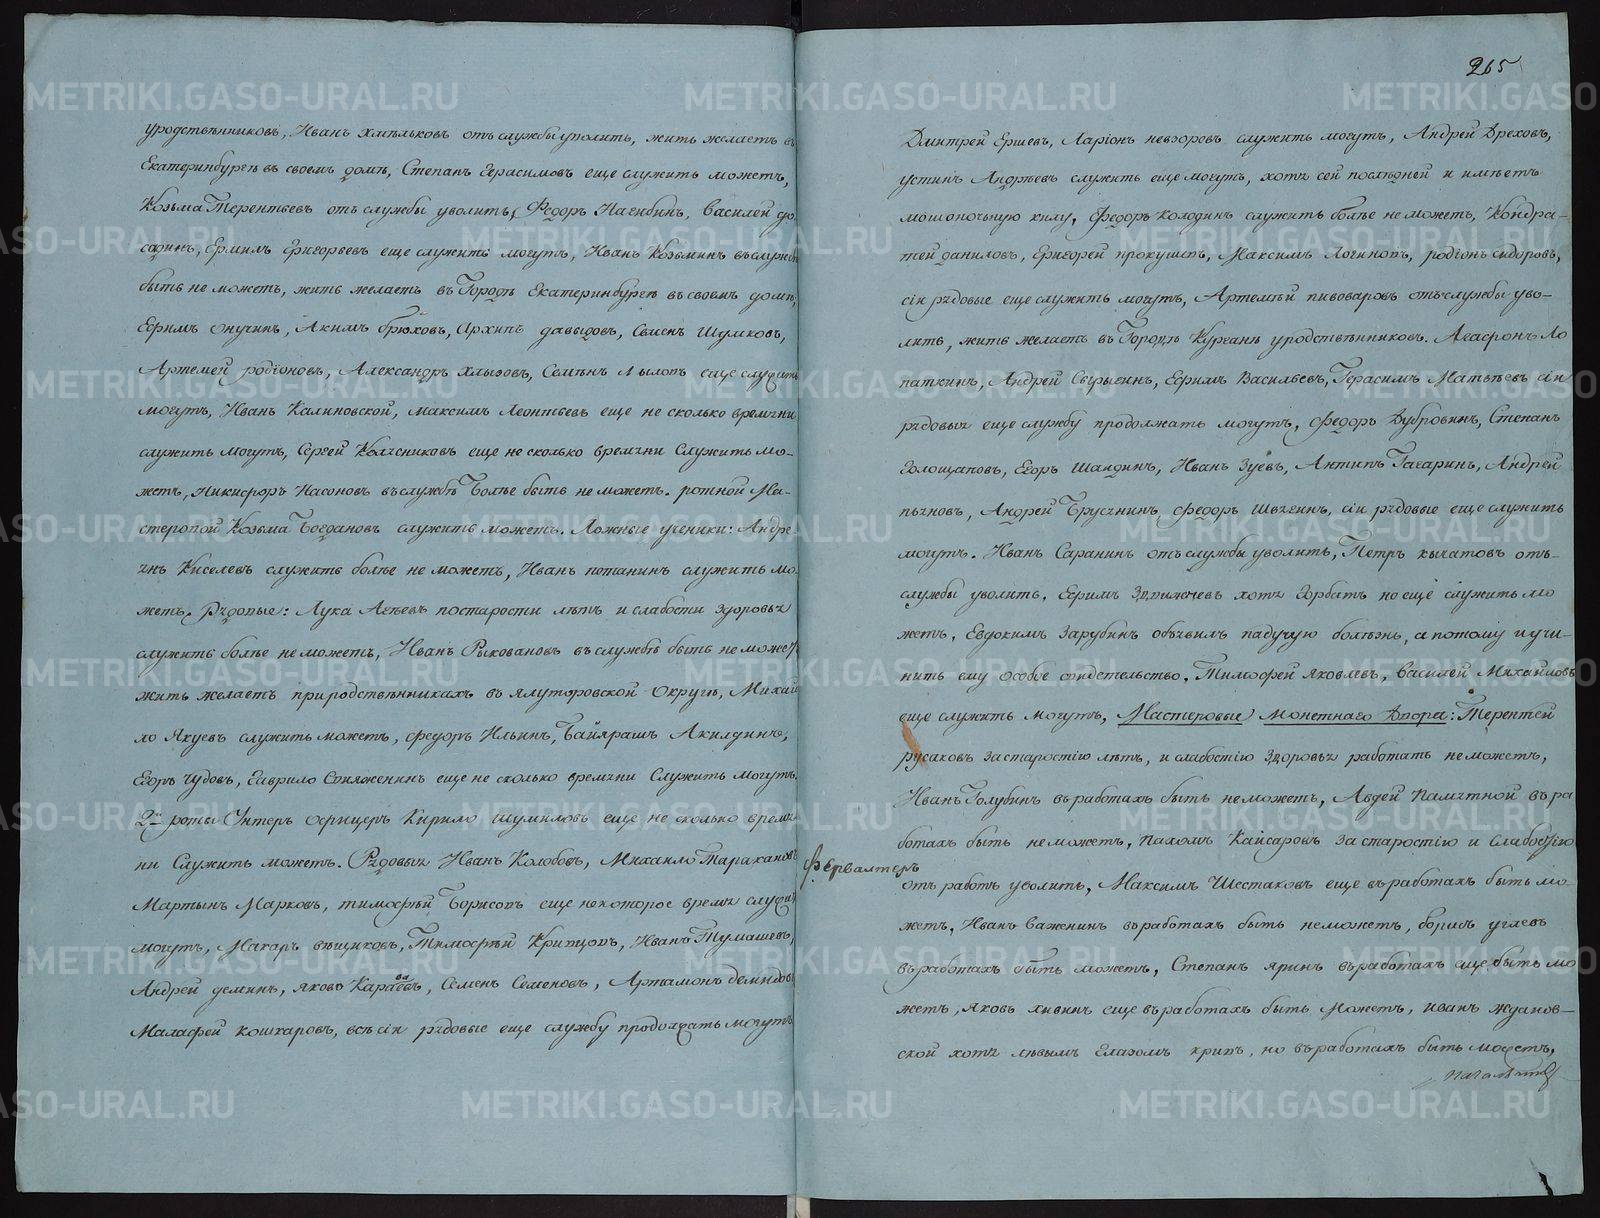 уродственниковъ, Иванъ Хмѣльковъ отъ службы уволить, жить желаетъ въ
Екатеринбургѣ въ своемъ домѣ, Степанъ Герасимовъ еще служить можетъ,
Козьма Терентьевъ отъ службы уволить, Федоръ Нагибинъ, Василей До-
садинъ, Ермилъ Григорьевъ еще служить могутъ, Иванъ Козьминъ въ службѣ
быть не можетъ, жить желаетъ въ Городѣ Екатеринбургѣ въ своемъ домѣ,
Ефимъ Онучинъ, Акимъ Брюховъ, Архипъ Давыдовъ, Семенъ Шумковъ,
Артемей Родіоновъ, Александръ Хлызовъ, Семенъ еще служить
могутъ, Иванъ Калиновской, Максимъ Леонтьевъ еще не сколько времяни
служить могутъ, Сергей Колесниковъ еще не сколько времяни служить мо-
жетъ, Никифоръ Насоновъ въ службѣ болѣе быть не можетъ. ротной Ма-
стеровой Козьма Богдановъ служить можетъ. Ложные ученики: Андре
янъ Киселевъ служить болѣе не можетъ, Иванъ Потанинъ служить мо-
жетъ. Рядовые: Лука Агѣевъ по старости лѣтъ и слабости здоровья
служить болѣе не можетъ, Иванъ Рысковановъ въ службѣ быть не можетъ
жить желаетъ при родственникахъ въ Ялуторовской Округѣ, Михай
ло Яхуевъ служить можетъ, Федоръ Ильинъ, Байярашъ Акилдинъ,
Егоръ Чудовъ, Гаврило Спиженинъ еще не сколько времяни служить могутъ.
2й роты Унтеръ Офицеръ Кирило Шумиловъ еще не сколько время
ни служить можетъ. Рядовыя Иванъ Колобовъ, Михайло Таракановъ
Мартынъ Марковъ, Тимофѣй Борисовъ еще некоторое время служить
могутъ, Макаръ Вѣщиковъ, Тимофѣй Кривцовъ, Иванъ Тумашевъ,
Андрей Деминъ, Яковъ Караваевъ, Семенъ Семеновъ, Артамонъ Демидовъ
Малафей Кошкаровъ, всѣ сіи рядовые еще службу продолжать могутъ
Фервалтеръ
265
Дмитрей Ершевъ, Ларіонъ Невзоровъ служить могутъ, Андрей Ореховъ,
Устинъ Андрѣевъ служить еще могутъ, хотя сей послѣдней и имѣетъ
мошоночьную килу, Федоръ Колодинъ служить болѣе не можетъ, Кондра-
тей Даниловъ, Григорей Прокушевъ, Максимъ Логиновъ, Родіонъ Сидоровъ,
сіи рядовые еще служить могутъ, Артемѣй Пивоваровъ отъ службы уво-
лить, жить желаетъ въ Городѣ Курганѣ у родственниковъ. Агафонъ Ло
паткинъ, Андрей Свѣрьгинъ, Ефимъ Васильевъ, Герасимъ Матвѣевъ сіи
рядовыя еще службу продолжать могутъ, Федоръ Дубровинъ, Степанъ
Голощаповъ, Егоръ Шандинъ, Иванъ Зуевъ, Антипъ Гагаринъ, Андрей
Пьяновъ, Андрей Бруснинъ, Федоръ Швягинъ, сіи рядовые еще служить
могутъ. Иванъ Саранинъ отъ службы уволить, Петръ Кычатовъ отъ-
службы уволить, Ефимъ хотя горбатъ но еще служить мо
жетъ, Евдокимъ Зарубинъ объявилъ падучую болѣзнь, а потому и учи-
нить ему особое свидетельство, Тимофей Яковлевъ, Василей Михайловъ
еще служить могутъ, Мастеровые Монетнаго Двора: Терентей
Русаковъ за старостію лѣтъ, и слабостію здоровья работать не можетъ,
Иванъ Голубинъ въ работахъ быть не можетъ, Авдей Памятной въ ра
ботахъ быть не можетъ, Пахомъ Кайсаровъ за старостію и слабостію
отъ работъ уволить, Максимъ Шестаковъ еще въ работахъ быть мо-
жетъ, Иванъ Важенинъ въ работахъ быть не можетъ, Борисъ Углевъ
въ работахъ быть можетъ, Степанъ Яринъ въ работахъ еще быть мо
жетъ, Яковъ Хивинъ еще въ работахъ быть можетъ, Иванъ Жданов-
ской хотя лѣвымъ глазомъ кривъ, но въ работахъ быть можетъ,